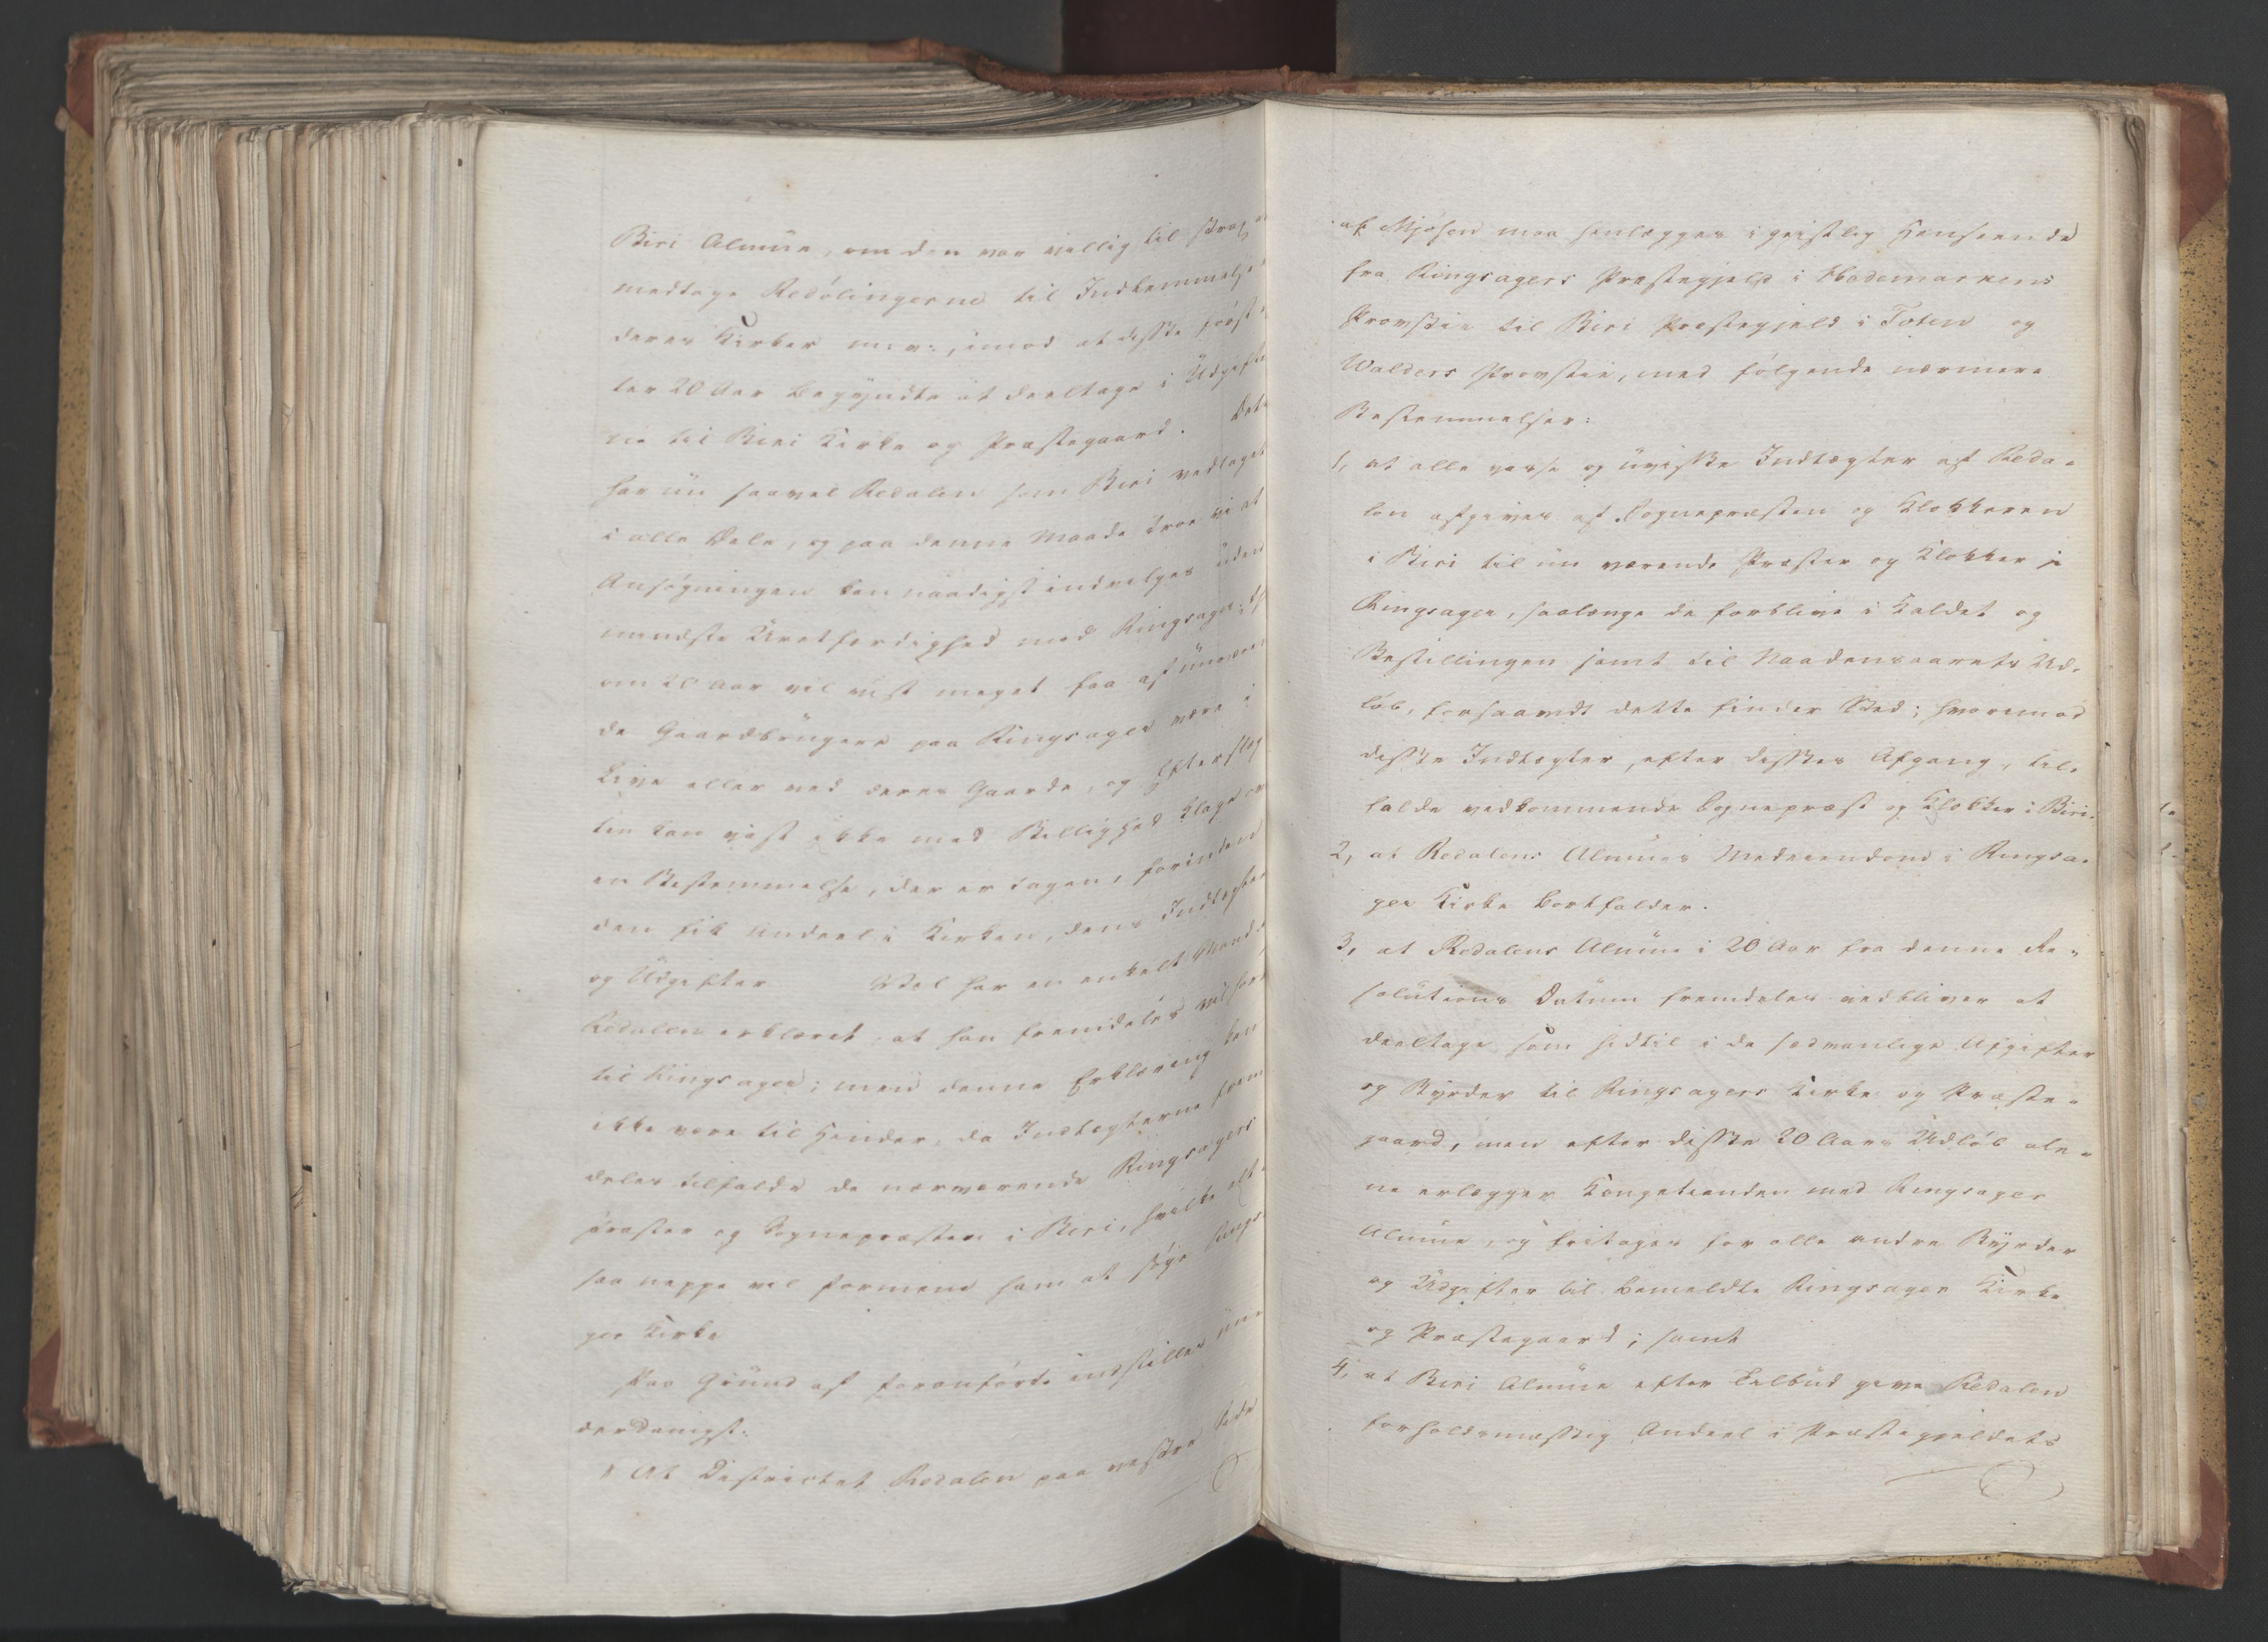 Biri Almue, om den var villig til strax at
medtage Redölingerne til Indlemmelse i
deres Kirker m.v:, imod at disse först ef-
ter 20 Aar begyndte at deeltage i Udgifter-
ne til Biri Kirke og Præstegaard. Dette
har nu saavel Redalen som Biri vedtaget
i alle Dele, og paa denne Maade troe vi at
Ansögningen kan naadigst indvilges uden
mindste Uretfærdighed mod Ringsager;
om 20 Aar vil vist meget faa af nuværen-
de Gaardbrugere paa Ringsager være i
Live eller ved deres Gaarde, og Efterslæg-
ten kan vist ikke med Billighed klage over
en Bestemmelse, der er tagen, forinden
den fik Andeel i Kirken, dens Indtægter
og Udgifter Vel har en enkelt Mand i
Redalen erklæret, at han fremdeles vil höre
til Ringsager; men denne Erklæring kan
ikke være til Hinder, da Indtægterne frem-
deles tilfalde de nærværende Ringsagers
Præster og Sognepræsten i Biri, hvilke alt-
saa neppe vil formene ham at söge Ringsa-
ger Kirke
Paa Grund af foranförte indstilles un-
derdanigst:
At Districtet Redalen paa vestre Side
af Mjösen maa henlægges i geistlig Henseende
fra Ringsagers Præstegjeld i Hedemarkens
Provstie til Biri Præstegjeld i Toten og
Walders Provstie, med fölgende nærmere
Bestemmelser:
1, at alle visse og uvisse Indtægter af Reda-
len afgives af Sognepræsten og Klokkeren
i Biri til nu værende Præster og Klokker i
Ringsager, saalænge de forblive i Kaldet og
Bestillingen samt til Naadensaarets Ud-
löb, forsaavidt dette finder Sted; hvorimod
disse Indtægter, efter disses Afgang, til-
falde vedkommende Sognepræst og Klokker i Biri.
2, at Redalens Almues Medeiendom i Ringsa-
ger Kirke bortfalder.
3, at Redalens Almue i 20 Aar fra denne Re-
solutions Datum fremdeles vedbliver at
deeltage som hidtil i de sædvanlige Afgifter
og Byrder til Ringsagers Kirke og Præste-
gaard, men efter disse 20 Aars Udlöb ale-
ne erlægger Kongetienden med Ringsager
Almue, og fritages for alle andre Byrder
og Udgifter til bemeldte Ringsager Kirke
og Præstegaard; samt
4, at Biri Almue efter Tilbud give Redalen
forholdsmæssig Andeel i Præstegjeldets